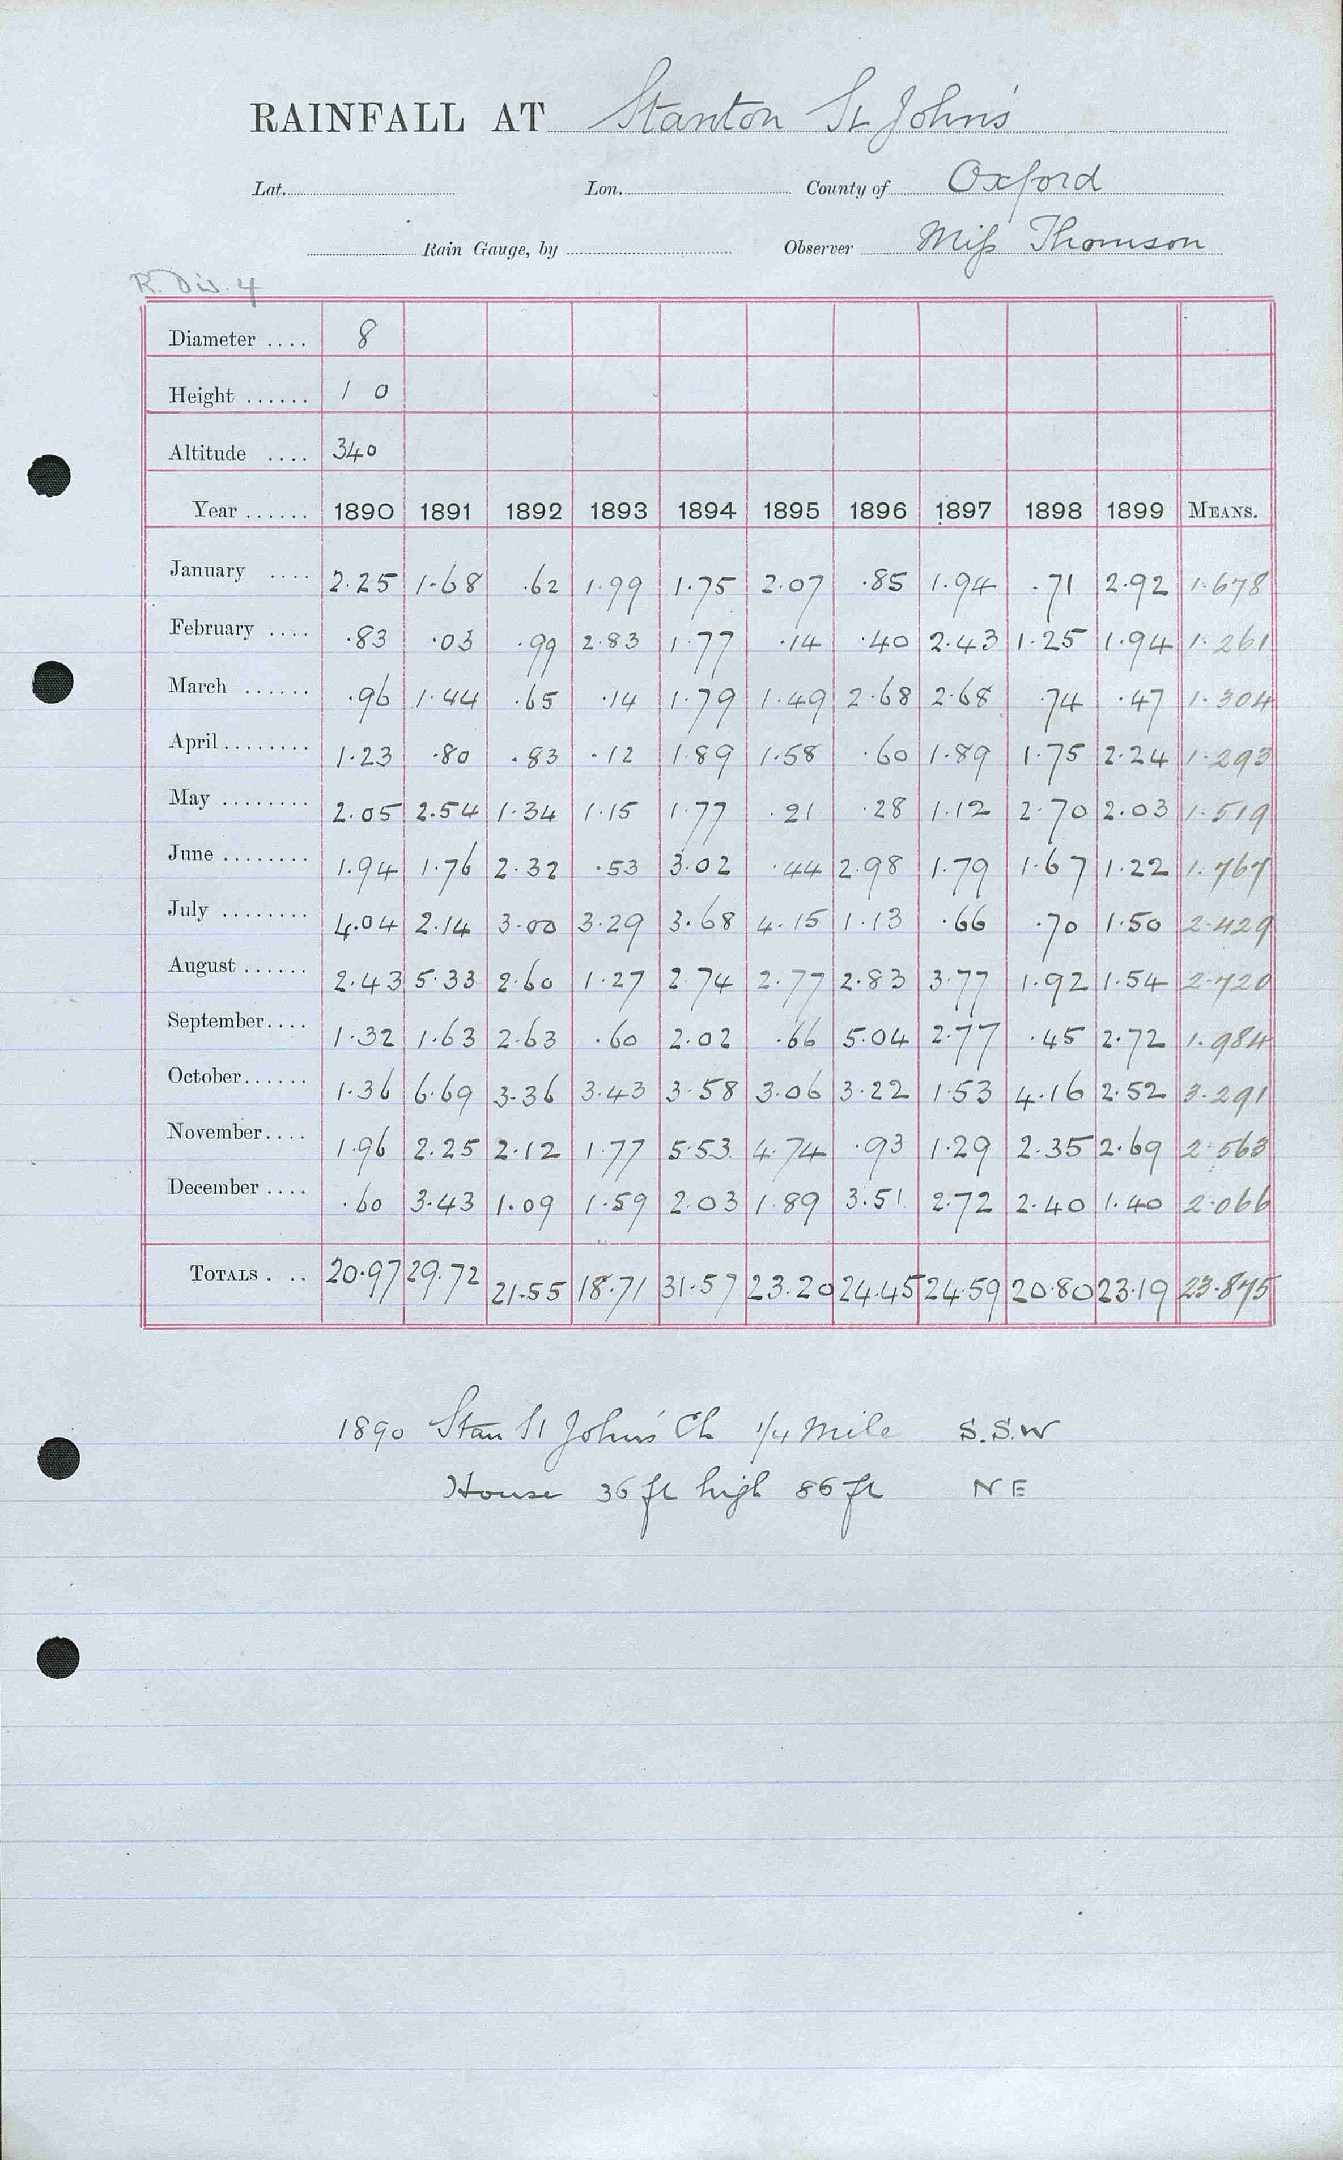 RAINFALL AT Stanton St John's
Lat. Lon. County of Oxford
Rain Gauge, by Observer Miss Thomson
R. Div. 4
Diameter .... 8
Height ...... 1 0
Altitude .... 340
Year ...... 1890 1891 1892 1893 1894 1895 1896 1897 1898 1899 MEANS.
January .... 2.25 1.68 .62 1.99 1.75 2.07 .85 1.94 .71 2.92 1.678
February .... .83 .03 .99 2.83 1.77 .14 .40 2.43 1.25 1.94 1.261
March ...... .96 1.44 .65 .14 1.79 1.49 2.68 2.68 .74 .47 1.304
April ........ 1.23 .80 .83 .12 1.89 1.58 .60 1.89 1.75 2.24 1.293
May ........ 2.05 2.54 1.34 1.15 1.77 .21 .28 1.12 2.70 2.03 1.519
June ........ 1.94 1.76 2.32 .53 3.02 .44 2.98 1.79 1.67 1.22 1.767
July ........ 4.04 2.14 3.00 3.29 3.68 4.15 1.13 .66 .70 1.50 2.429
August ...... 2.43 5.33 2.60 1.27 2.74 2.77 2.83 3.77 1.92 1.54 2.720
September .... 1.32 1.63 2.63 .60 2.02 .66 5.04 2.77 .45 2.72 1.984
October ...... 1.36 6.69 3.36 3.43 3.58 3.06 3.22 1.53 4.16 2.52 3.291
November .... 1.96 2.25 2.12 1.77 5.53 4.74 .93 1.29 2.35 2.69 2.563
December .... .60 3.43 1.09 1.59 2.03 1.89 3.51 2.72 2.40 1.40 2.066
TOTALS . .. 20.97 29.72 21.55 18.71 31.57 23.20 24.45 24.59 20.80 23.19 23.875
1890 Stan St John's Ch 1/4 Mile S.S.W
House 36 ft high 86 ft NE